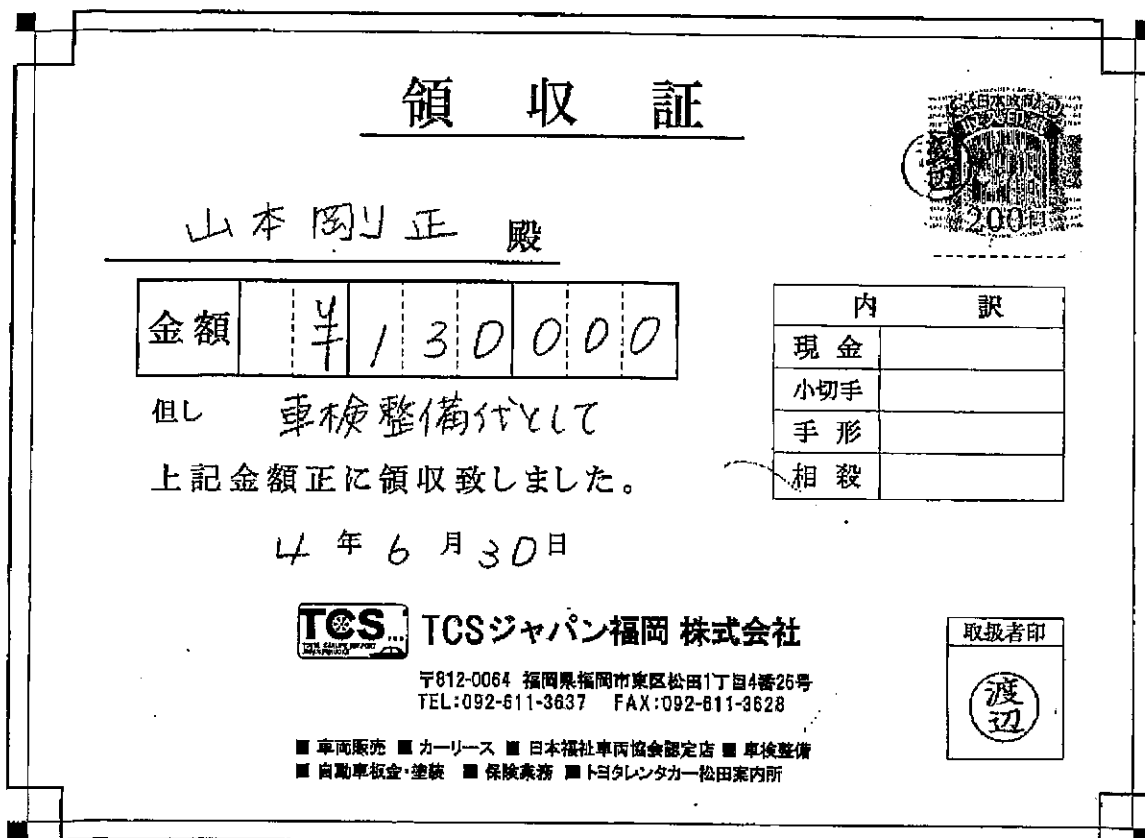 領収証
200円
山本剛正 殿
金額 ¥130000
但し 車検整備代として
上記金額正に領収致しました。
4年6月30日
内訳
現金
小切手
手形
相殺
TCS
TCSジャパン福岡 株式会社
〒812-0064 福岡県福岡市東区松田1丁目4番26号
TEL:092-611-3637 FAX:092-611-3628
■ 車両販売 ■ カーリース ■ 日本福祉車両協会認定店 ■ 車検整備
■ 自動車板金・塗装 ■ 保険業務 ■ トヨタレンタカー松田案内所
取扱者印
渡辺